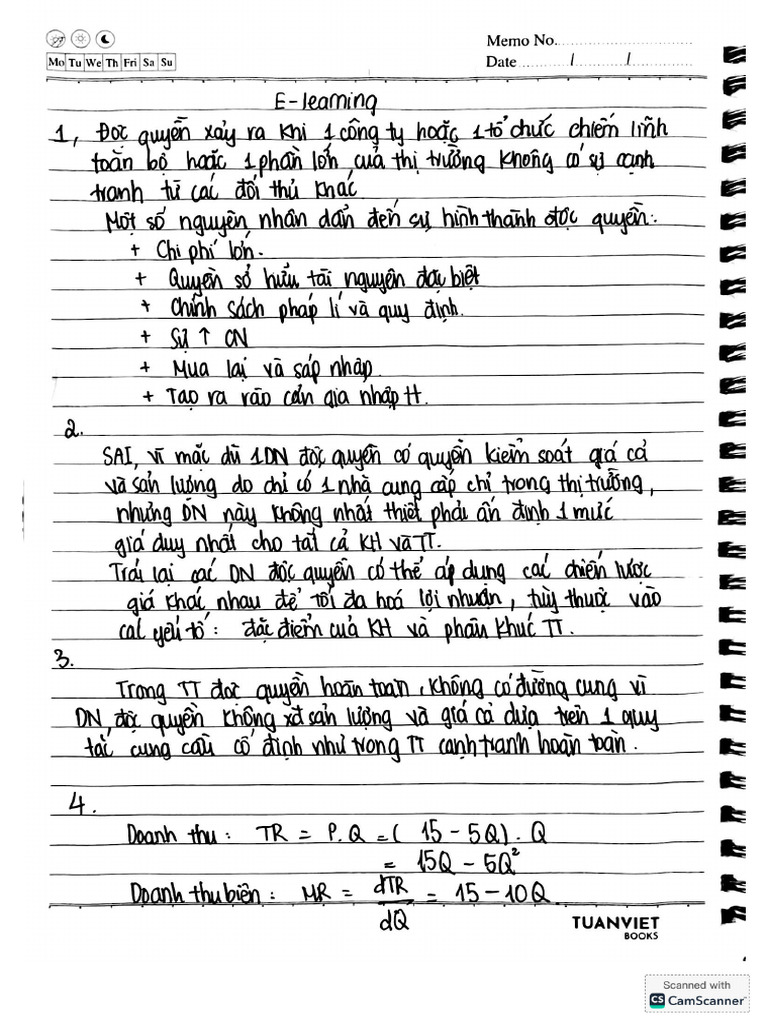 Memo No.
Mo Tu We Th Fri Sa Su
Date / /
E-learning
1, Độc quyền xảy ra khi 1 công ty hoặc 1 tổ chức chiếm lĩnh
toàn bộ hoặc 1 phần lớn của thị trường không có sự cạnh
tranh từ các đối thủ khác
Một số nguyên nhân dẫn đến sự hình thành độc quyền:
+ Chi phí lớn.
+ Quyền sở hữu tài nguyên đặc biệt
+ Chính sách pháp lí và quy định.
+ Sự ↑ CN
+ Mua lại và sáp nhập.
+ Tạo ra rào cản gia nhập tt.
2.
SAI, vì mặc dù 1 DN độc quyền có quyền kiểm soát giá cả
và sản lượng do chỉ có 1 nhà cung cấp chỉ trong thị trường,
nhưng DN này không nhất thiết phải ấn định 1 mức
giá duy nhất cho tất cả KH và TT.
Trái lại các DN độc quyền có thể áp dụng các chiến lược
giá khác nhau để tối đa hoá lợi nhuận, tùy thuộc vào
các yếu tố: đặc điểm của KH và phân khúc TT.
3.
Trong TT độc quyền hoàn toàn, không có đường cung vì
DN độc quyền không xđ sản lượng và giá cả dựa trên 1 quy
tắc cung cầu cố định như trong TT cạnh tranh hoàn toàn.
4.
Doanh thu: TR = P.Q = (15 - 5Q).Q
= 15Q - 5Q²
Doanh thu biên: MR = dTR/dQ = 15 - 10Q
TUANVIET
BOOKS
Scanned with
CS CamScanner